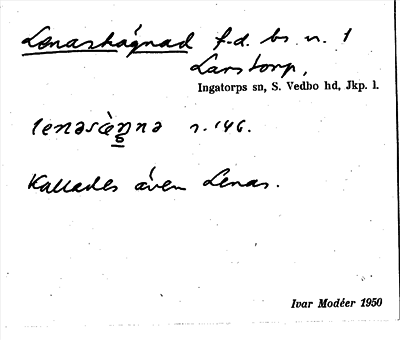 Lenashägnad f.d. bs. n. 1
Larstorp,
Ingatorps sn, S. Vedbo hd, Jkp. l.
s. 146.
Kallades även Lenas.
Ivar Modéer 1950